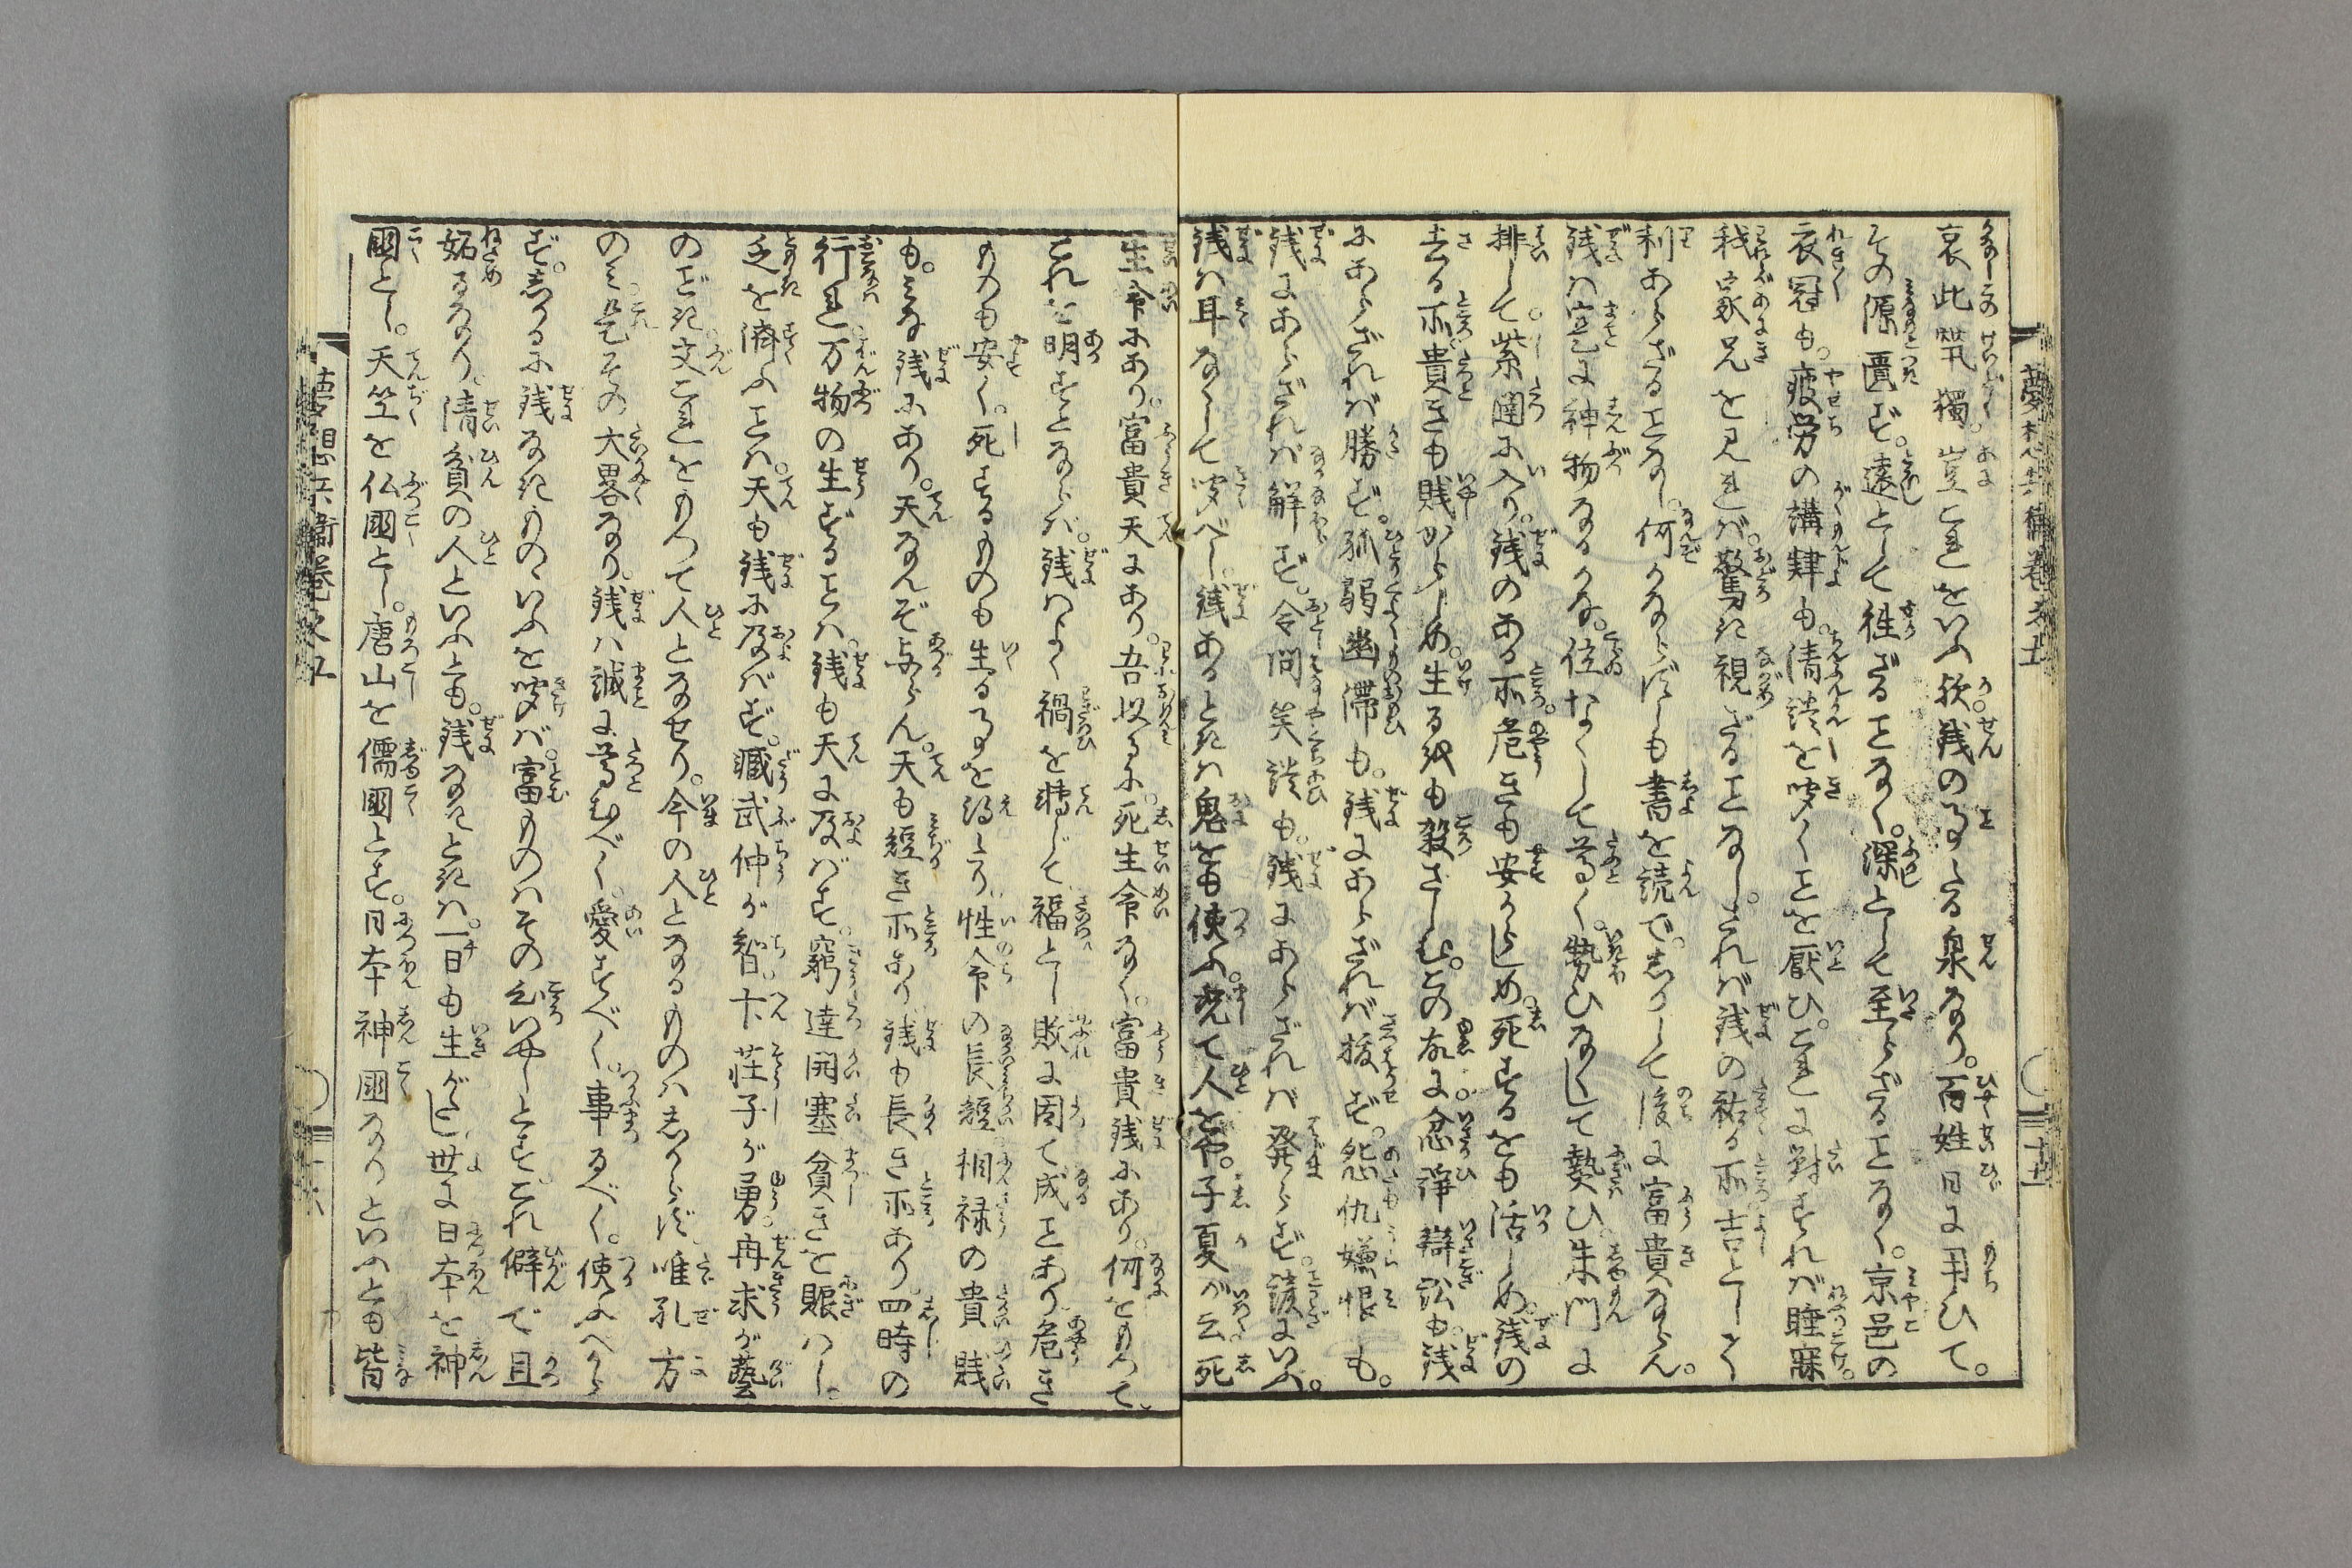 哀此煢獨。豈これをいふ歟。銭の言たる泉なり。百姓日に用ひて。
その源匱ず。遠として徃ざることなく。深として至らざることなく。京邑の
衣冠も。疲労の講肄も。清談を聞くことを厭ひ。これに對すれば睡寐。
我家兄を見れば。驚き視ざることなし。されば銭の祐る所吉として
利あらざることなし。何かならずしも書を読で。しかして後に富貴ならん。
銭は寔に神物なるかな。位なくして尊く。勢ひなくして熱ひ。朱門に
排して。紫闥に入り。銭のある所。危きも安からしめ。死するをも活しめ。銭の
去る所貴きも賤からしめ。生るも殺さしむ。この故に。忿諍辯訟も。銭
にあらざれば勝ず。孤弱幽滞も。銭にあらざれば抜ず。怨仇嫌恨も。
銭にあらざれば解ず。令問笑談も。銭にあらざれば発らず。諺にいふ。
銭は耳なくして聞べし。銭あるときは鬼をも使ふ。况て人をや。子夏が云。死
生命にあり。富貴天にあり。吾以るに。死生命なく。富貴銭にあり。何をもつて
これを明すとならば。銭はよく禍を轉じて福とし。敗に因て成ことあり。危き
ものも安く。死するものも生ることを得たり。性命の長短。相禄の貴賤
も。みな銭にあり。天なんぞ与らん。天も短き所あり銭も長き所あり。四時の
行れ。万物の生ずることは。銭も天に及ばず。窮達開塞貧きを賑はし。
乏を濟ふことは。天も銭に及ばず。臧武仲が智。卞荘子が勇。冉求が藝
のごとき。文これをもつて人となせり。今の人となるものはしからず。唯孔方
のみ。是その大畧なり。銭は誠に尊むべく。愛すべく。事るべく。使ふべから
ず。しかるに銭なきもの。いふを聞ば。富ものはその心いやしとす。これ僻で且
妬るなり。清貧の人といふとも。銭なきときは。一日も生がたし。世に日本を神
國とし。天竺を仏國とし。唐山を儒國とす。日本神國なりといへとも皆